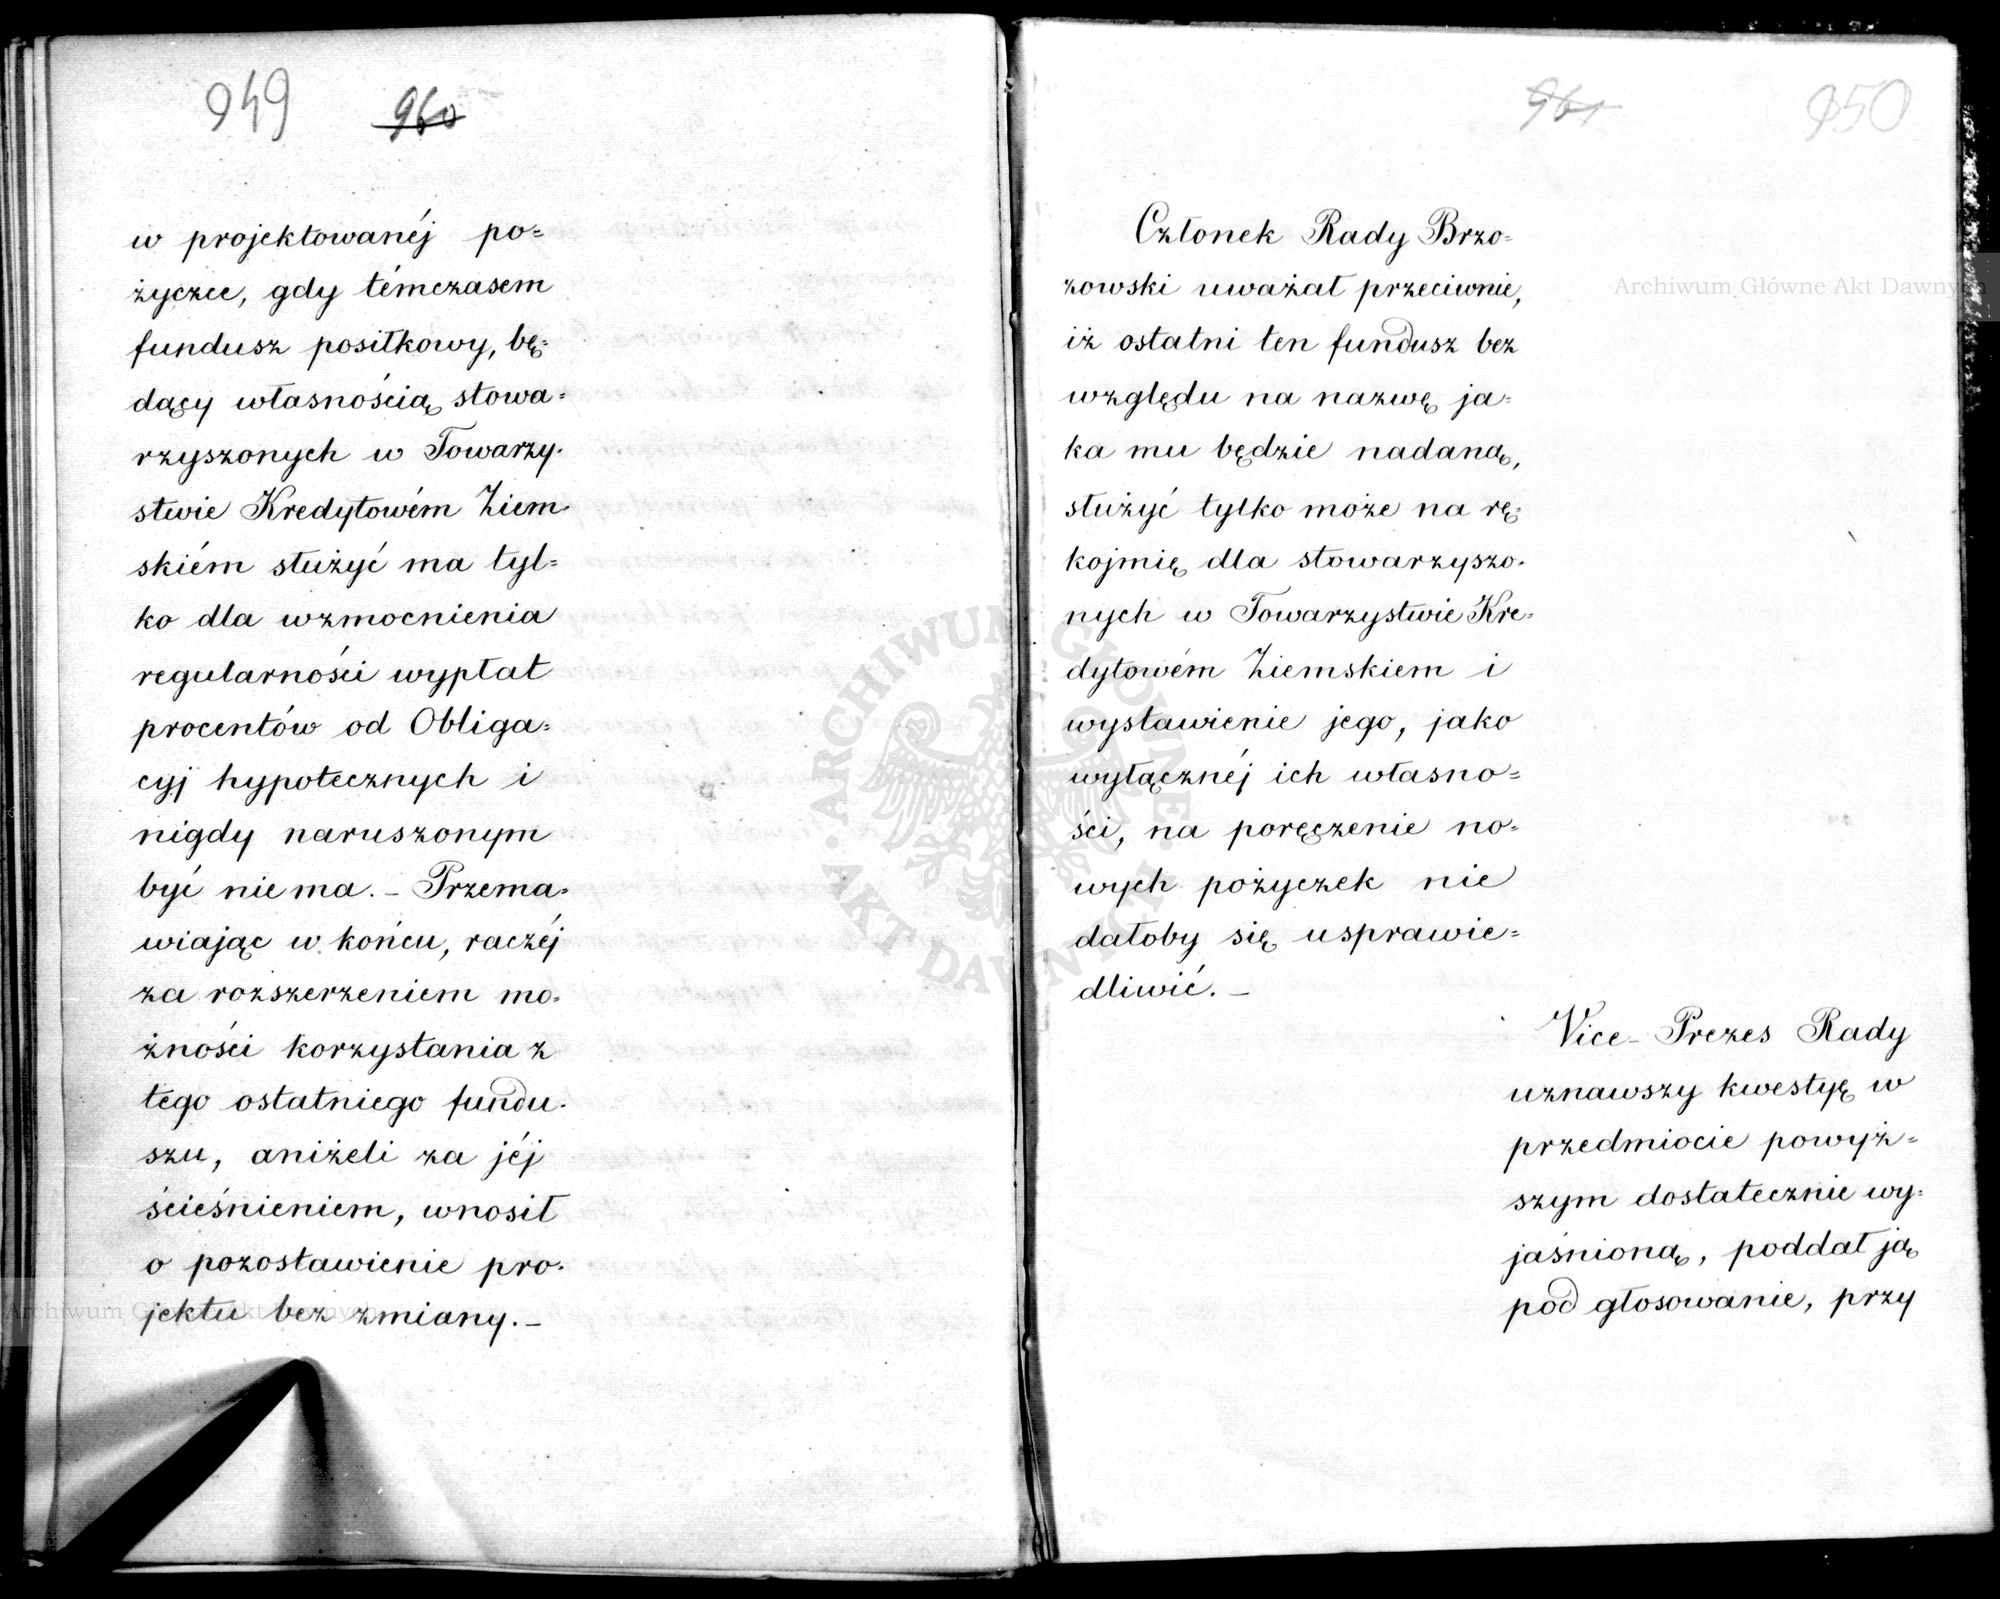 949 960
w projektowanéj po=
życzce, gdy témczasem
fundusz posiłkowy, bę=
dący własnością stowa=
rzyszonych w Towarzy-
stwie Kredytowém Ziem-
skiém służyć ma tyl=
ko dla wzmocnienia
regularności wypłat
procentów od Obliga=
cyj hypotecznych i
nigdy naruszonym
być nie ma. – Przema-
wiając w końcu, raczéj
za rozszerzeniem mo-
żności korzystania z
tego ostatniego fundu-
szu, aniżeli za jéj
ścieśnieniem, wnosił
o pozostawienie pro-
jektu bez zmiany. –
961 950
Członek Rady Brzo=
zowski uważał przeciwnie,
iż ostatni ten fundusz bez
względu na nazwę ja=
ka mu będzie nadaną,
służyć tylko może na rę=
kojmię dla stowarzyszo-
nych w Towarzystwie Kre=
dytowém Ziemskiem i
wystawienie jego, jako
wyłącznéj ich własno=
ści, na poręczenie no=
wych pożyczek nie
dałoby się usprawie=
dliwić. –
Vice-Prezes Rady
uznawszy kwestyę w
przedmiocie powyż=
szym dostatecznie wy=
jaśnioną, poddał ją
pod głosowanie, przy
Archiwum Główne Akt Dawnych
Archiwum Główne Akt Dawnych
· ARCHIWUM GŁÓWNE · AKT DAWNYCH